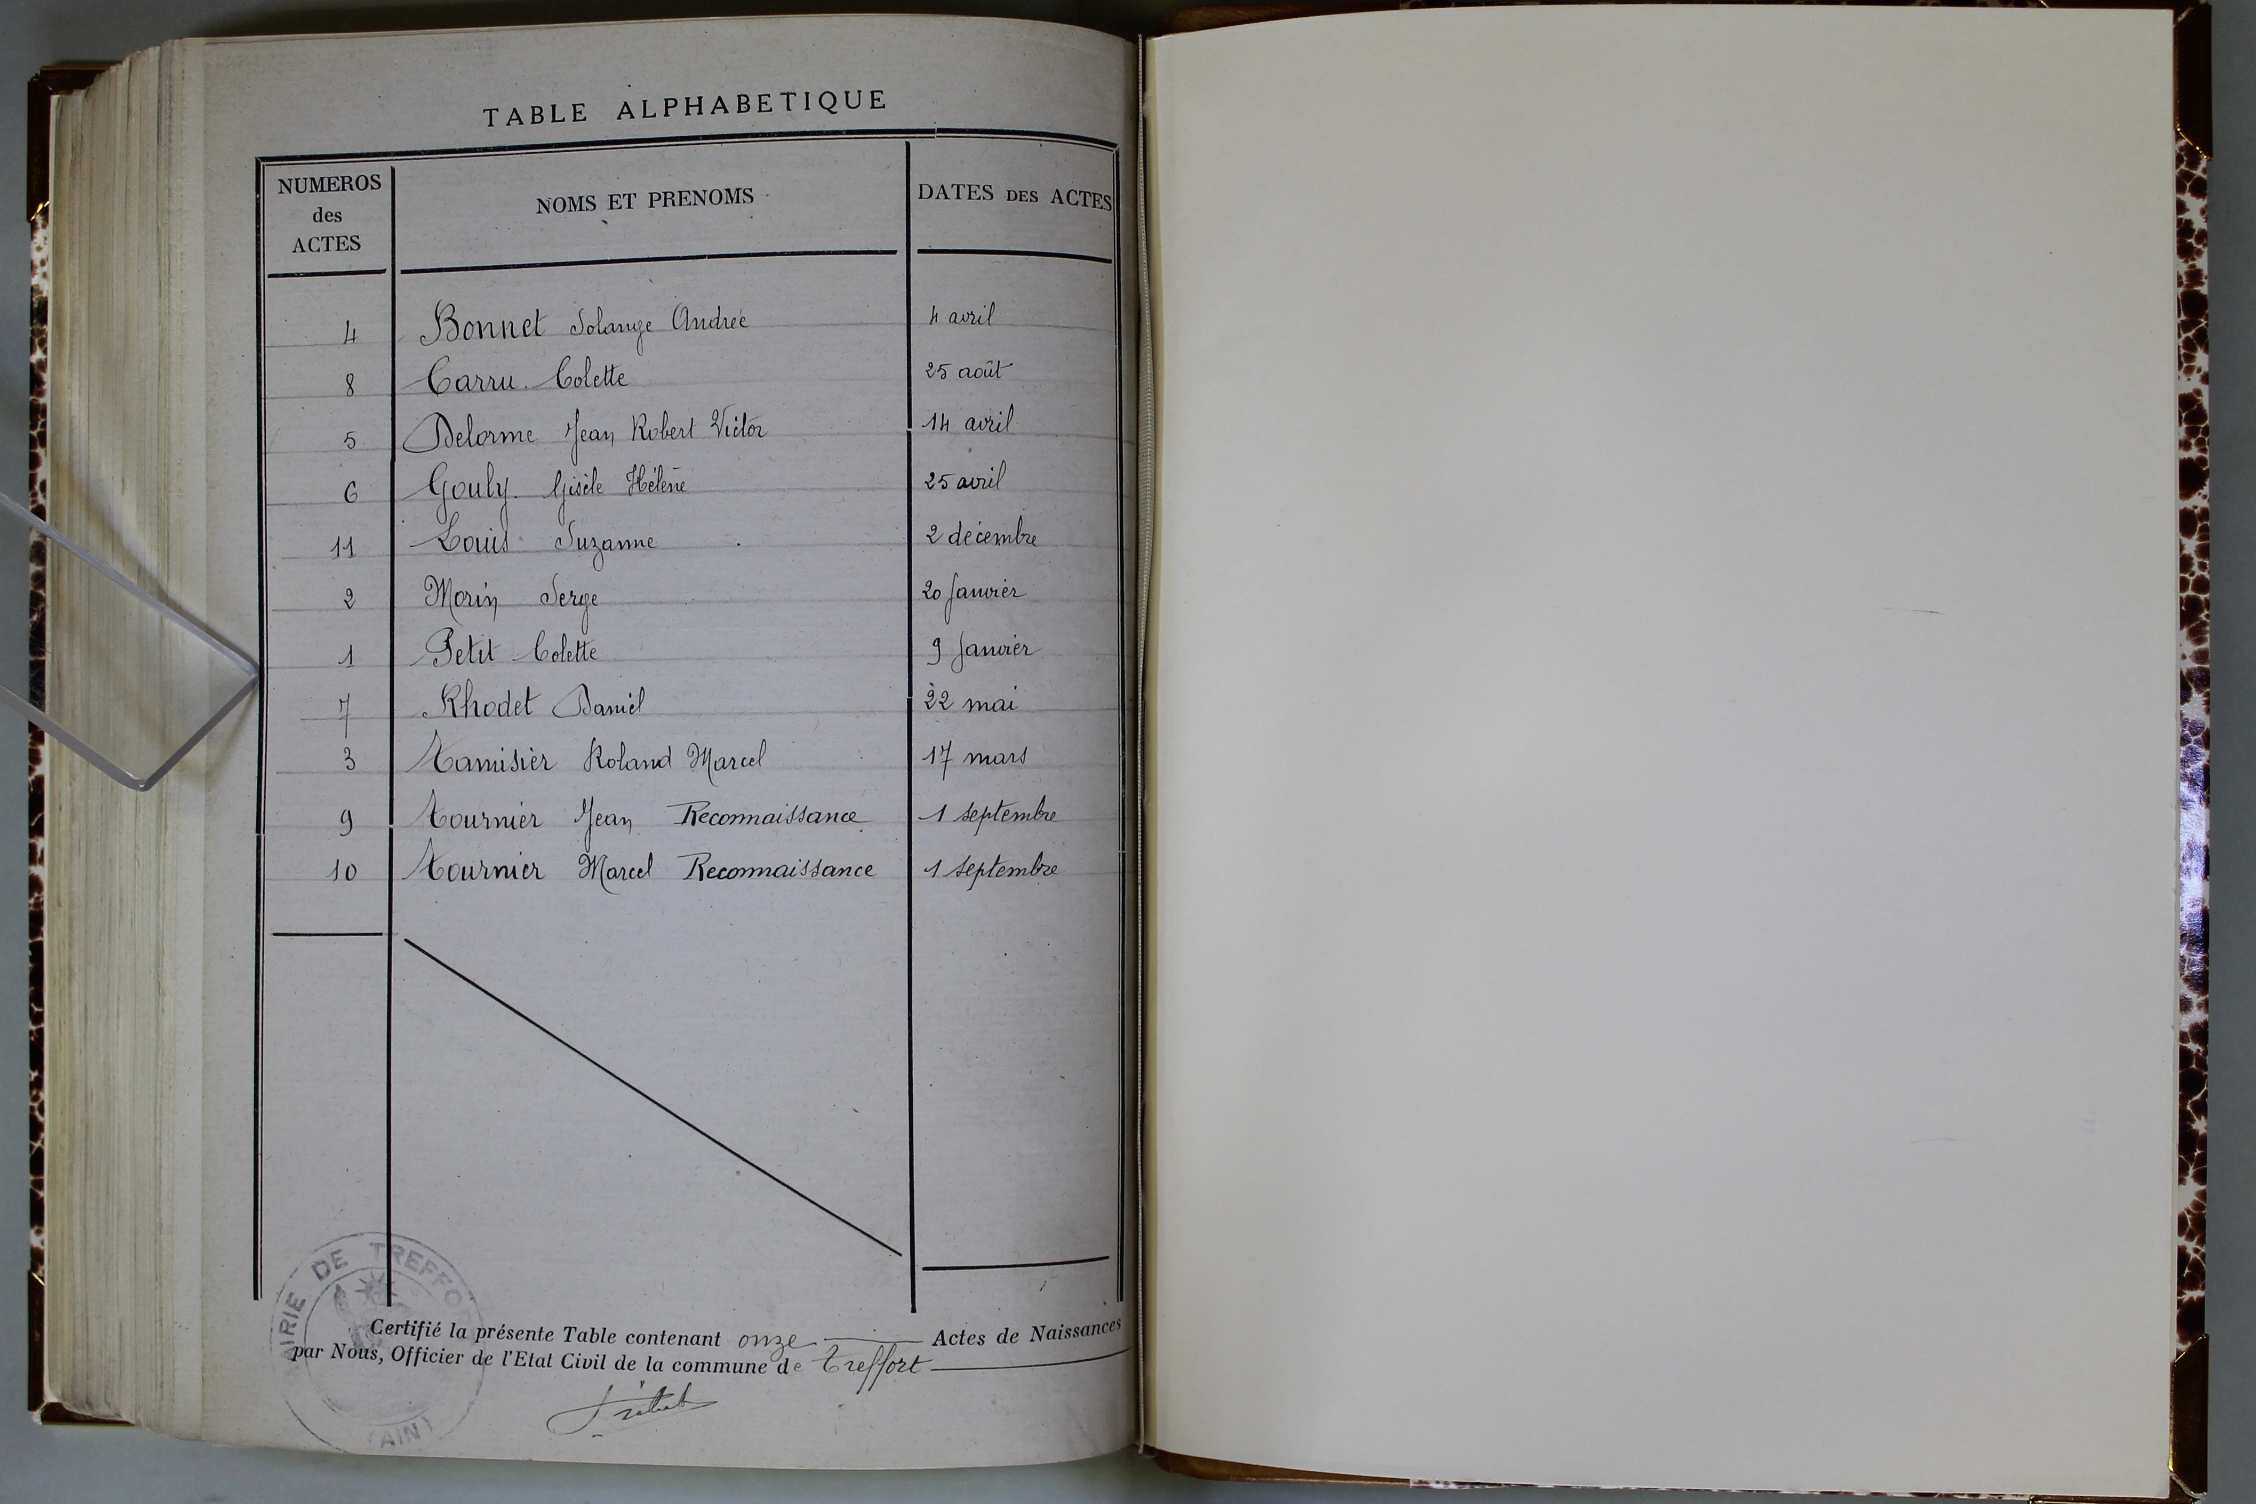 TABLE ALPHABETIQUE
NUMEROS
des
ACTES
NOMS ET PRENOMS
DATES DES ACTES
4 Bonnet Solange Andrée 4 avril
8 Carru Colette 25 août
5 Delorme Jean Robert Victor 14 avril
6 Gouly Gisèle Hélène 25 avril
11 Louis Suzanne 2 décembre
2 Morin Serge 20 Janvier
1 Petit Colette 9 Janvier
7 Rhodet Daniel 22 mai
3 Tamisier Roland Marcel 17 mars
9 Tournier Jean Reconnaissance 1 septembre
10 Tournier Marcel Reconnaissance 1 septembre
MAIRIE DE TREFFORT
(AIN)
Certifié la présente Table contenant onze Actes de Naissances
par Nous, Officier de l'Etat Civil de la commune de Treffort